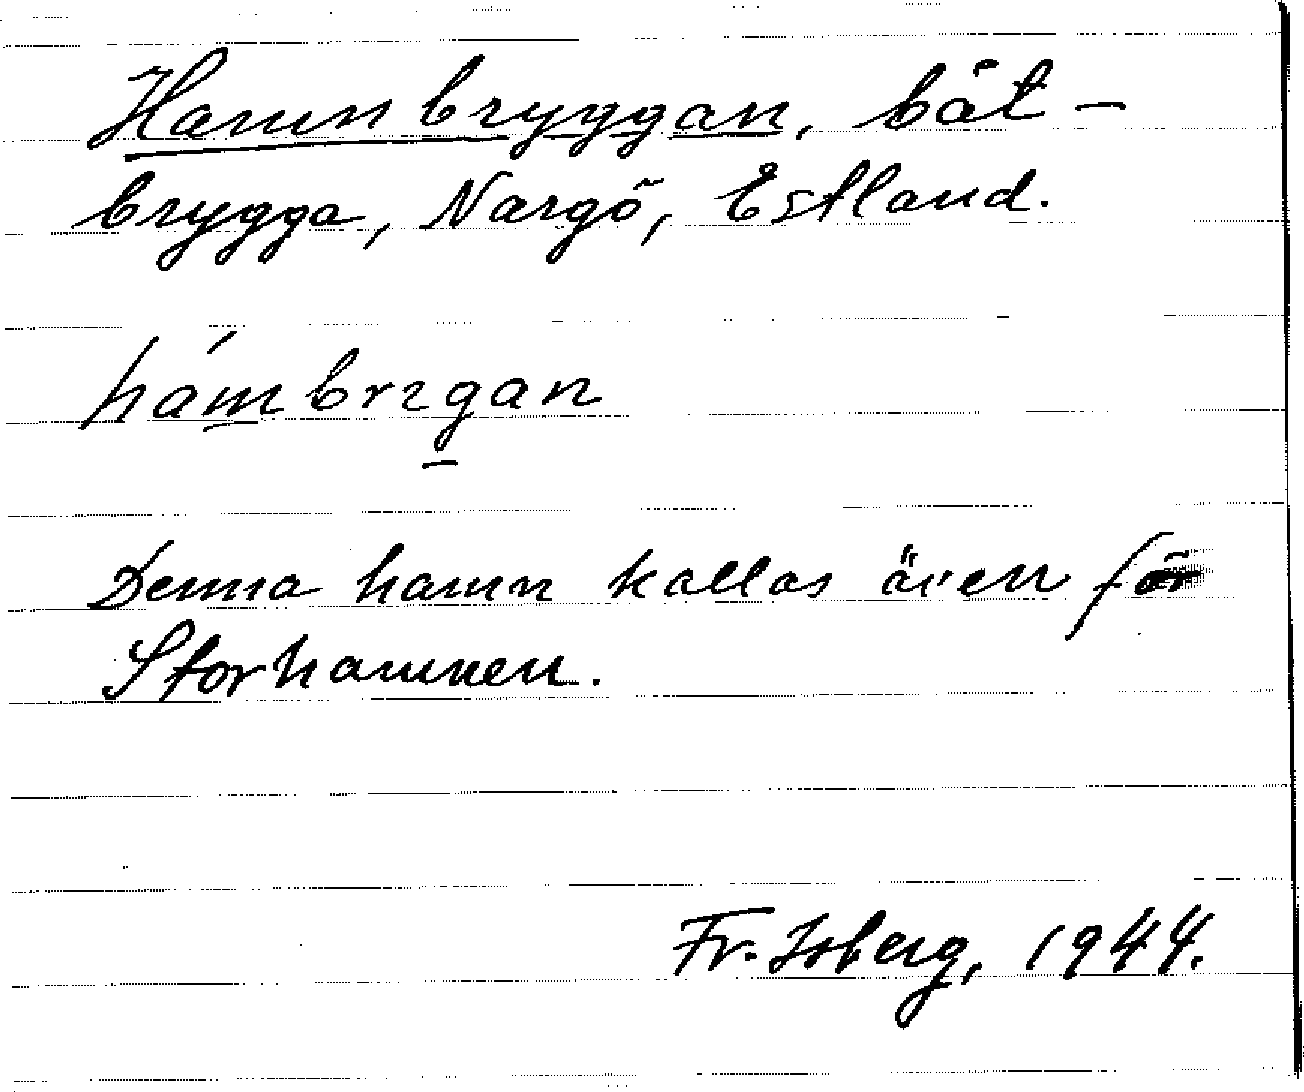 Hamnbryggan, båt-
brygga, Nargö, Estland.
hámbrɪgan
Denna hamn kallas även för
Storhamnen.
Fr. Isberg, 1944.